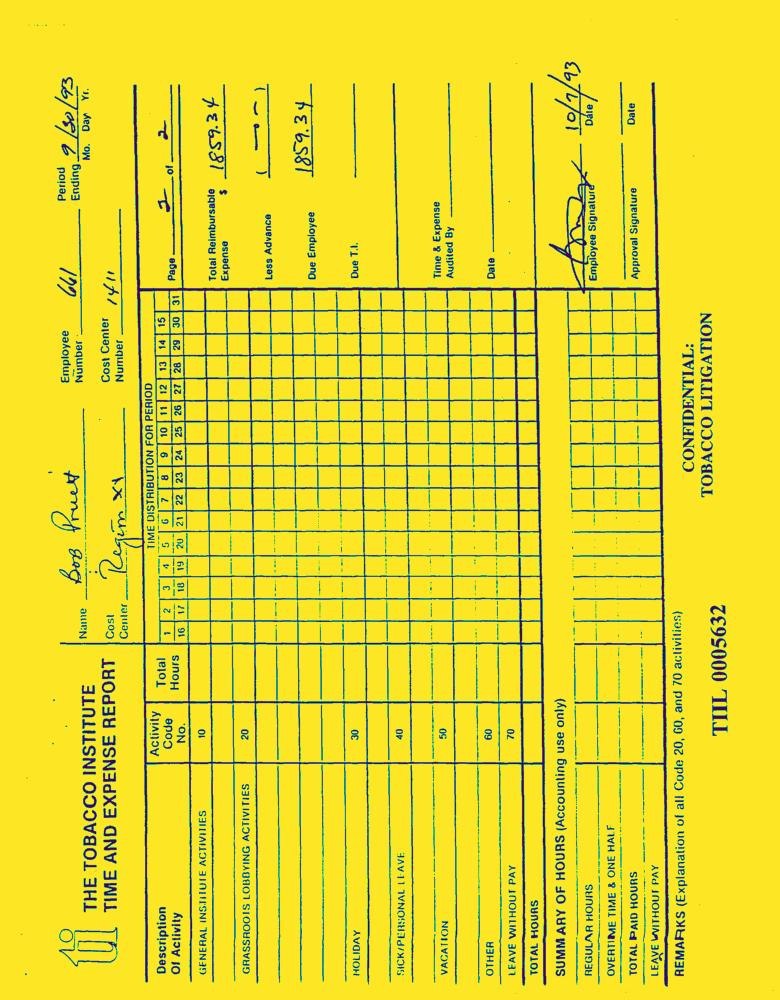 THE TOBACCO INSTITUTE
TIME AND EXPENSE REPORT
Name Bob Pruett
Employee Number 661
Period Ending 9/30/93
Mo. Day Yr.
Cost Center Region XI
Cost Center Number 1411
Description Of Activity
Activity Code No.
Total Hours
TIME DISTRIBUTION FOR PERIOD
1 2 3 4 5 6 7 8 9 10 11 12 13 14 15
16 17 18 19 20 21 22 23 24 25 26 27 28 29 30 31
Page 2 of 2
GENERAL INSTITUTE ACTIVITIES 10
GRASSROOTS LOBBYING ACTIVITIES 20
HOLIDAY 30
SICK/PERSONAL LEAVE 40
VACATION 50
OTHER 60
LEAVE WITHOUT PAY 70
TOTAL HOURS
Total Reimbursable Expense $ 1859.34
Less Advance ( — )
Due Employee 1859.34
Due T.I.
Time & Expense Audited By
Date
SUMMARY OF HOURS (Accounting use only)
REGULAR HOURS
OVERTIME TIME & ONE HALF
TOTAL PAID HOURS
LEAVE WITHOUT PAY
10/7/93
Employee Signature Date
Approval Signature Date
REMARKS (Explanation of all Code 20, 60, and 70 activities)
CONFIDENTIAL:
TOBACCO LITIGATION
TIIL 0005632